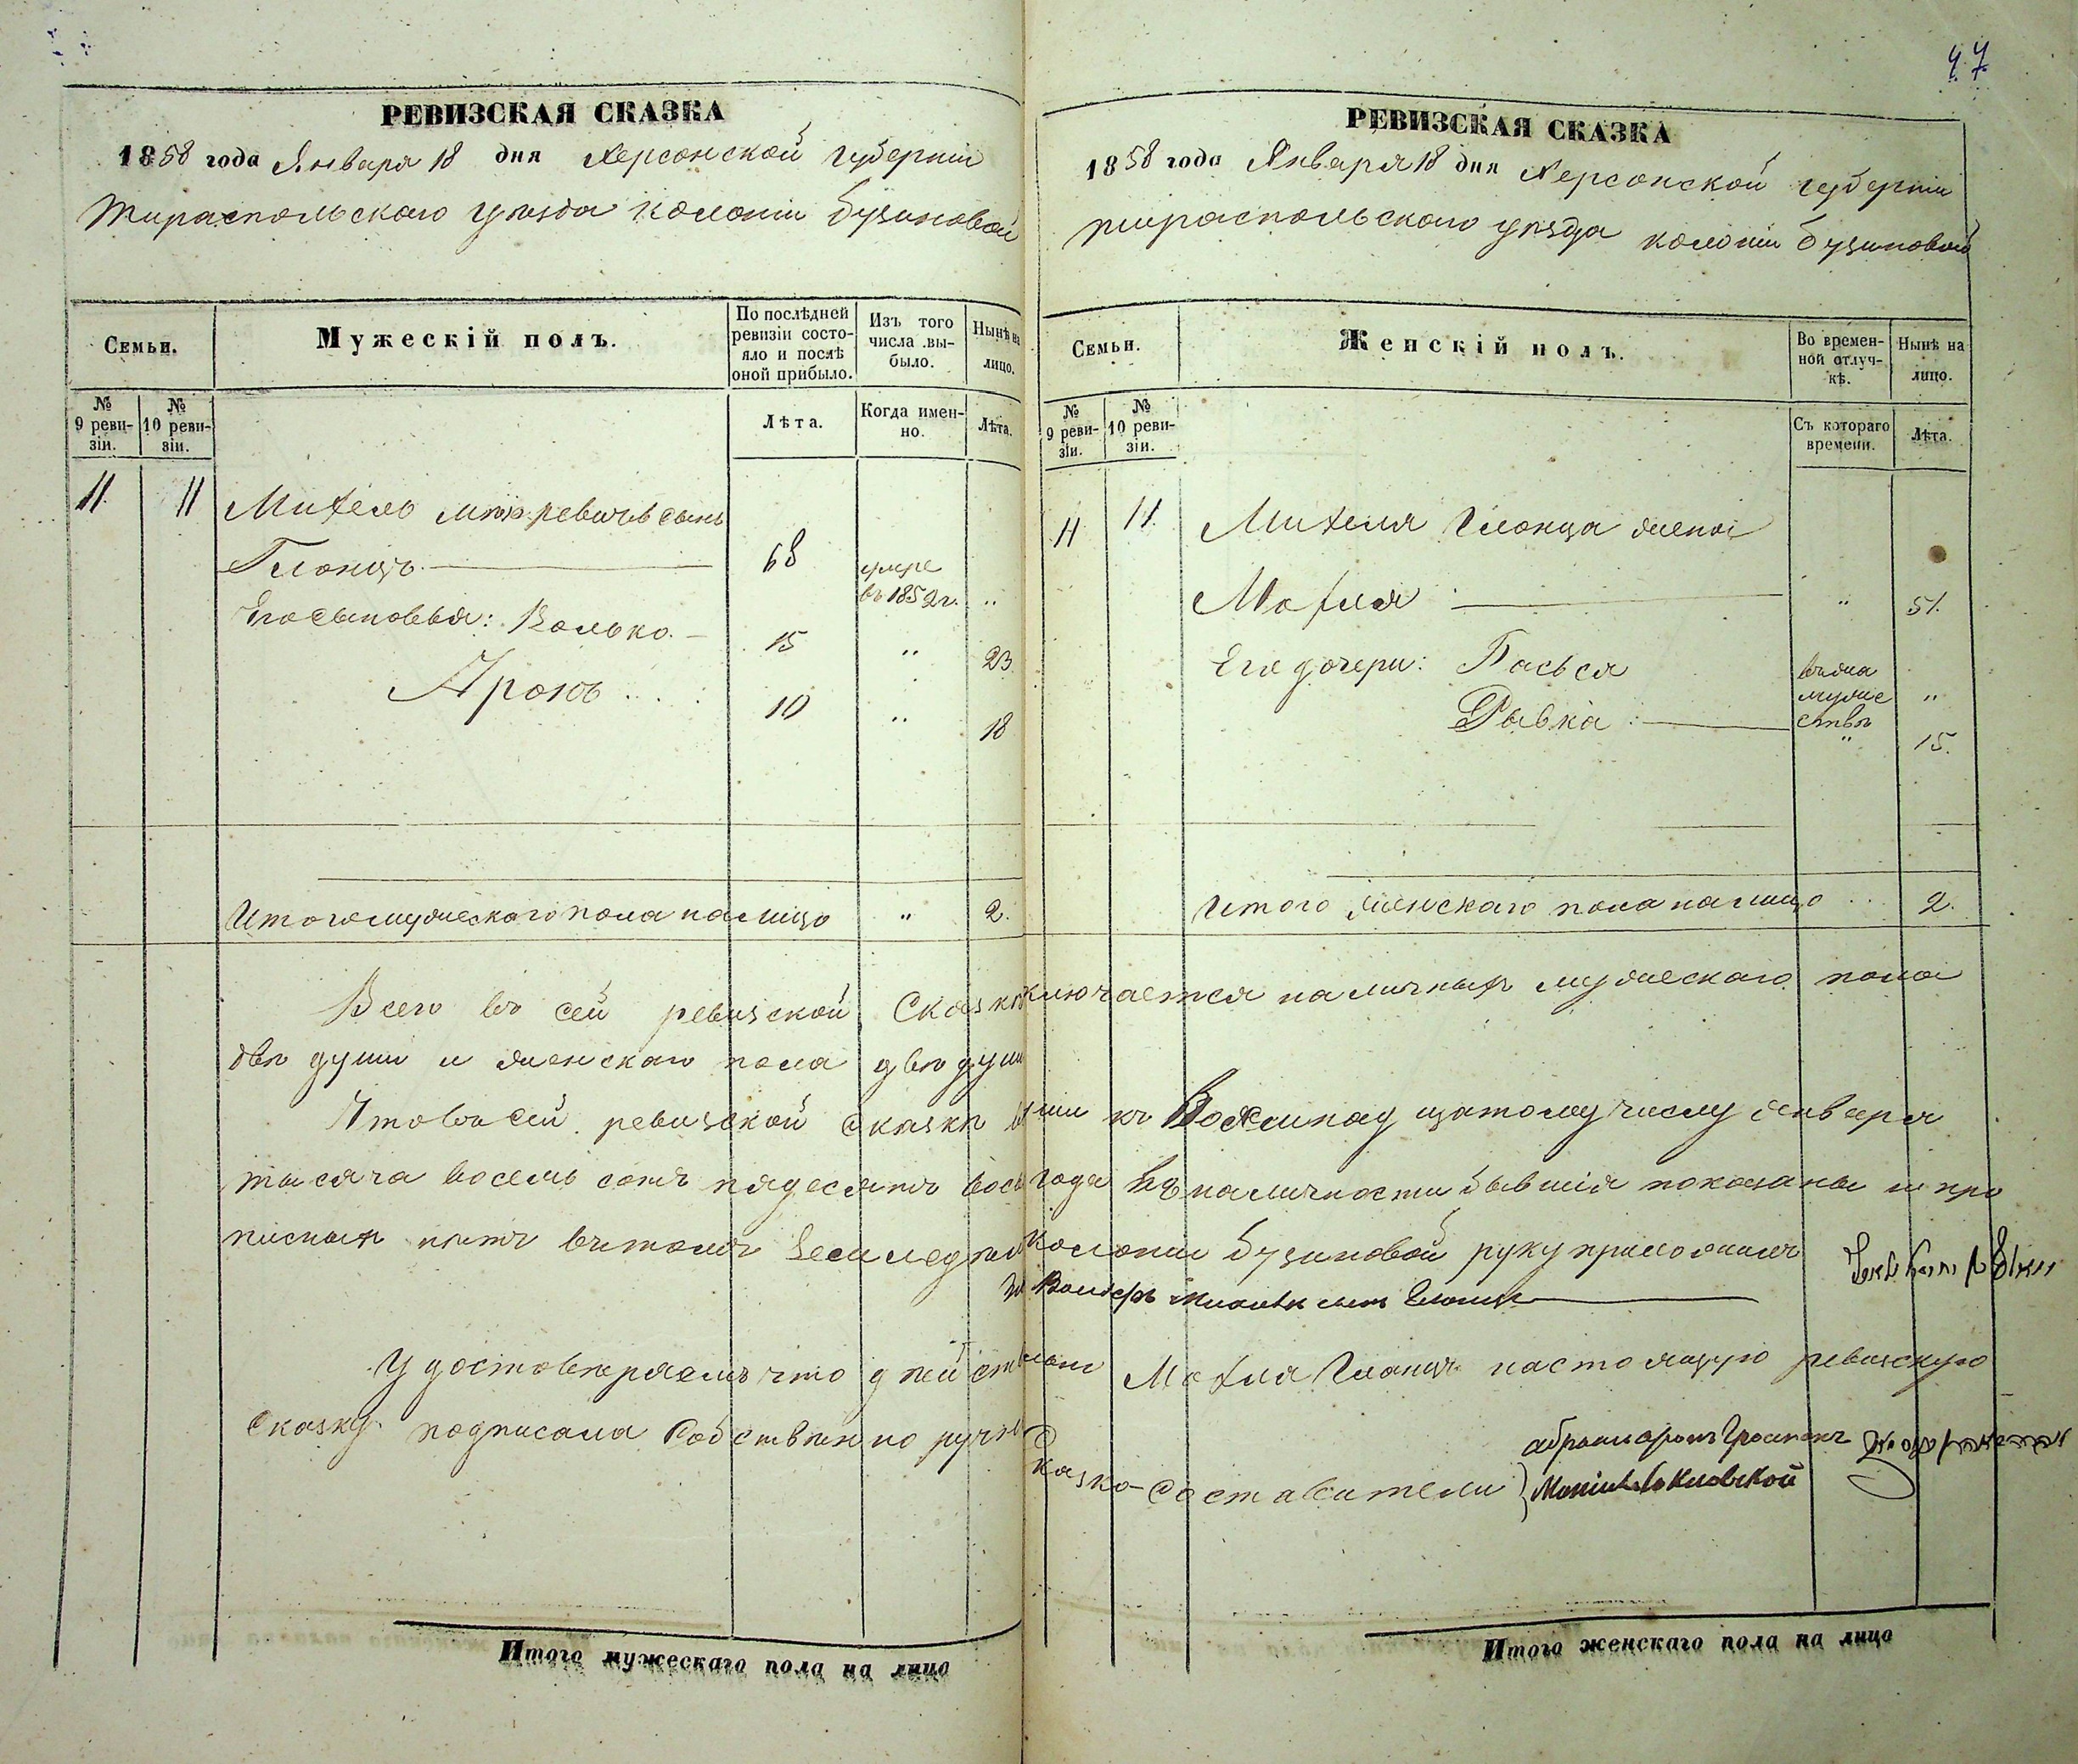 47
РЕВИЗСКАЯ СКАЗКА
1858 года Января 18 дня Херсонской губерніи
Тираспольскаго уѣзда колоніи Бузиновой
Семьи.
Мужескій полъ.
По послѣдней ревизіи состояло и послѣ оной прибыло.
Изъ того числа выбыло.
Нынѣ на лицо.
№ 9 ревизіи.
№ 10 ревизіи.
Лѣта.
Когда именно.
Лѣта.
11. 11 Михель сынъ
Глонцъ. 68 умре въ 1852 г. "
Его сыновья: Волько. 15 " 23
Аронъ 10 " 18
Итого мужескаго пола на лицо " 2.
РЕВИЗСКАЯ СКАЗКА
1858 года Января 18 дня Херсонской губерніи
Тираспольскаго уѣзда колоніи Бузиновой
Семьи.
Женскій полъ.
Во временной отлучкѣ.
Нынѣ на лицо.
№ 9 ревизіи.
№ 10 ревизіи.
Съ котораго времени.
Лѣта.
11 11. Михеля Глонца жена
Махля " 51.
Его дочери: Басься въ замужествѣ "
Рывка " 15.
Итого женскаго пола на лицо 2.
Всего въ сей ревизской Сказкѣ заключается наличныхъ мужескаго пола
двѣ души и женскаго пола двѣ души
Что въ сей ревизской сказкѣ всѣ къ Восемнадцатому числу января
тысяча восемь сотъ пядесятъ года въ наличности бывшія показаны и про
писныхъ нѣтъ въ томъ колоніи Бузиновой руку приложилъ
Удостовѣряемъ что Махля Гланцъ настоящую ревизскую
сказку подписала Собственно ручно
Сказко-составители
Итого мужескаго пола на лицо
Итого женскаго пола на лицо